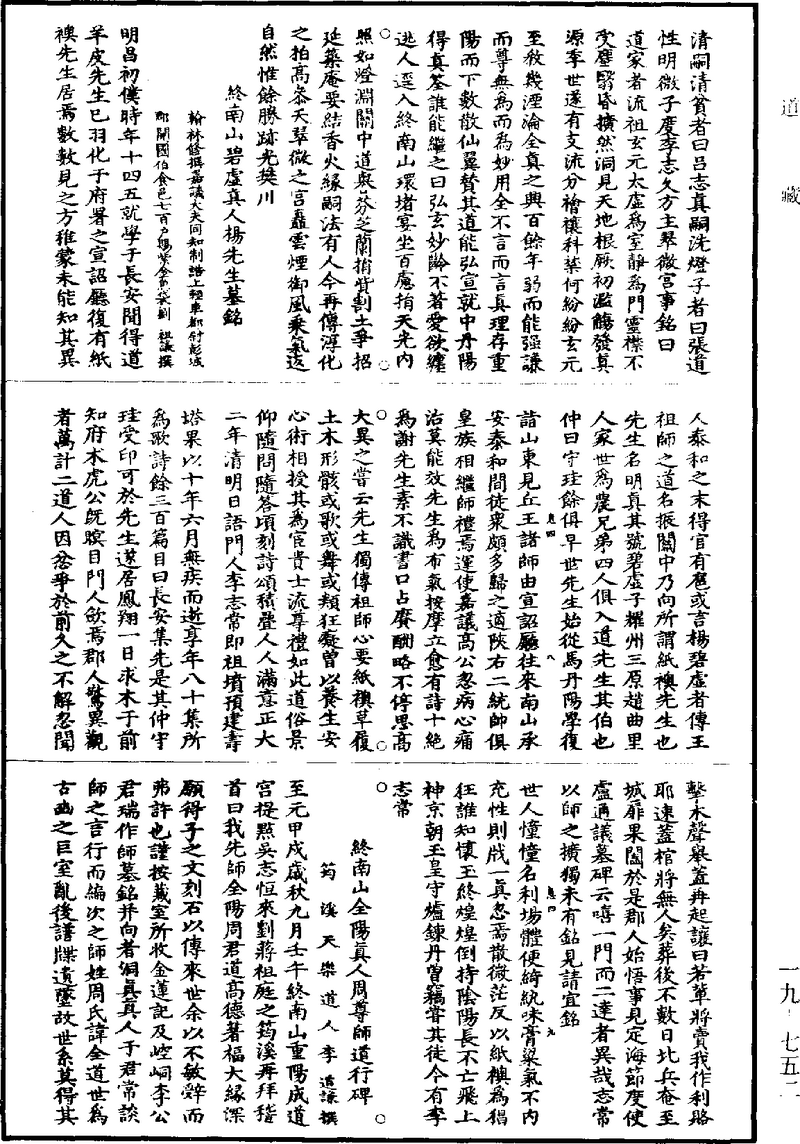 道藏
清嗣清貧者曰呂志真嗣洗燈子者曰張道
性明微子度李志久方主翠微宮事銘曰
道家者流祖玄元太虛為室靜為門靈襟不
受塵翳昏擴然洞見天地根厥初濫觴發真
源季世遂有支流分禬禳科禁何紛紛玄元
至教幾湮淪全真之興百餘年弱而能强謙
而尊無為而為妙用全不言而言真理存重
陽而下數散仙翼贊其道能弘宣就中丹陽
得真荃誰能繼之曰弘玄妙齡不著愛欲纏
逃人遥入終南山環堵宴坐百慮捐天光內
照如燈淵關中道與芬芝蘭捐貲割土爭招
延築庵要結香火緣嗣法有人今再傳淳化
之柏高叅天翠微之宮矗雲煙御風乘氣返
自然惟餘勝跡光樊川
終南山碧虛真人楊先生墓銘
翰林修撰嘉議大夫同知制誥上輕車都尉彭城
郡開國伯食邑七百户賜紫金魚袋劉祖謙撰
明昌初僕時年十四五就學于長安聞得道
羊皮先生已羽化于府署之宣詔廳復有紙
襖先生居焉數數見之方稚蒙未能知其異
人泰和之末得官有邑或言楊碧虛者傳王
祖師之道名振關中乃向所謂紙襖先生也
先生名明真其號碧虛子耀州三原趙曲里
人家世為農兄弟四人俱入道先生其伯也
仲曰守珪餘俱早世先生始從馬丹陽學復
請山東見丘王諸師由宣詔廳往來南山承
安泰和間徒衆頗多歸之適陝右二統帥俱
皇族相繼師禮焉運使嘉議高公忽病心痛
治莫能效先生為布氣按摩立愈有詩十絕
為謝先生素不識書口占賡酬略不停思高
大異之嘗云先生獨傳祖師心要紙襖草履
土木形骸或歌或舞或類狂癡曾以養生安
心術相授其為宦貴士流尊禮如此道俗景
仰隨問隨答頃刻詩頌積疊人人滿意正大
二年清明日語門人李志常即祖墳預建壽
塔果以十年六月無疾而逝享年八十集所
為歌詩餘三百篇目曰長安集先是其仲守
珪受印可於先生遂居鳳翔一日求木于前
知府术虎公既瞑目門人斂焉郡人驚異觀
者萬計二道人因忿爭於前久之不解忽聞
擊木聲舉蓋冉起讓曰若輩將賣我作利路
耶速蓋棺將無人矣葬後不數日北兵奄至
城扉果闔於是郡人始悟事見定海節度使
盧通議墓碑云嘻一門而二達者異哉志常
以師之擴獨未有銘見請宜銘
世人憧憧名利場體便綺紈味膏粱氣不內
充性則戕一真忽焉散微茫反以紙襖為猖
狂誰知懷玉終煌煌倒持陰陽長不亡飛上
神京朝玉皇守爐鍊丹曾竊嘗其徒今有李
志常
終南山全陽真人周尊師道行碑
筠溪天樂道人李道謙撰
至元甲戌歲秋九月壬午終南山重陽成道
宮提點吳志恒來劉蔣祖庭之筠溪再拜稽
首曰我先師全陽周君道高德著福大緣深
願得子之文刻石以傳來世余以不敏辭而
弗許也謹按藏室所收金蓮記及崆峒李公
君瑞作師墓銘并向者洞真真人于君常談
師之言行而編次之師姓周氏諱全道世為
古豳之巨室亂後譜牒遺墜故世系莫得其
一九-七五二